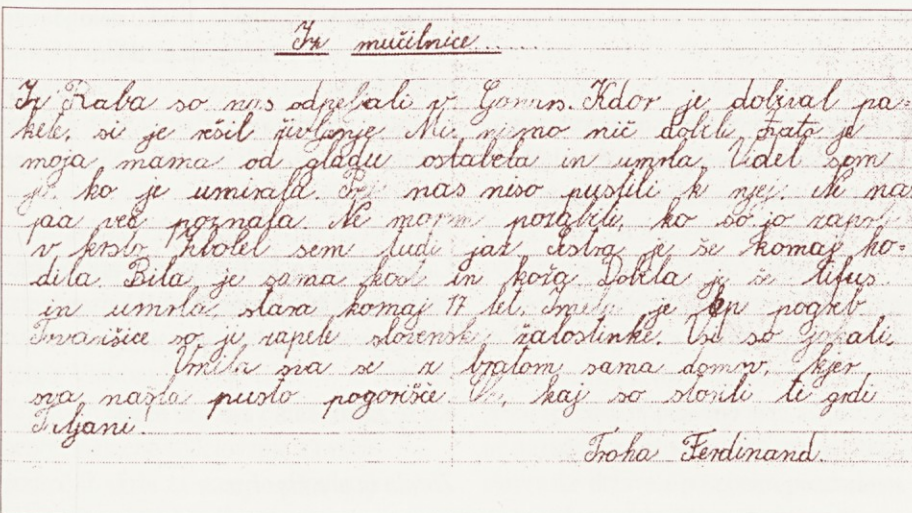 Iz mučilnice...
Iz Raba so nas odpeljali v Gonars. Kdor je dobival pa-
kete, si je rešil življenje. Mi nismo nič dobili, zato je
moja mama od gladu oslabela in umrla. Videl sem
jo, ko je umirala. nas niso pustili k njej. Ni na
pa več poznala. Ne morem pozabiti, ko so jo zaprli
v krsto. Hotel sem tudi jaz. Sestra je še komaj ho-
dila. Bila je sama kost in koža. Dobila je še tifus
in umrla, stara komaj 17 let. Imela je lep pogreb.
Tovarišice so ji zapele slovenske žalostinke. Vsi so jokali.
Vrnila sva se z bratom sama domov, kjer
sva našla pusto pogorišče. kaj so storili te grdi
Italjani.
Troha Ferdinand.